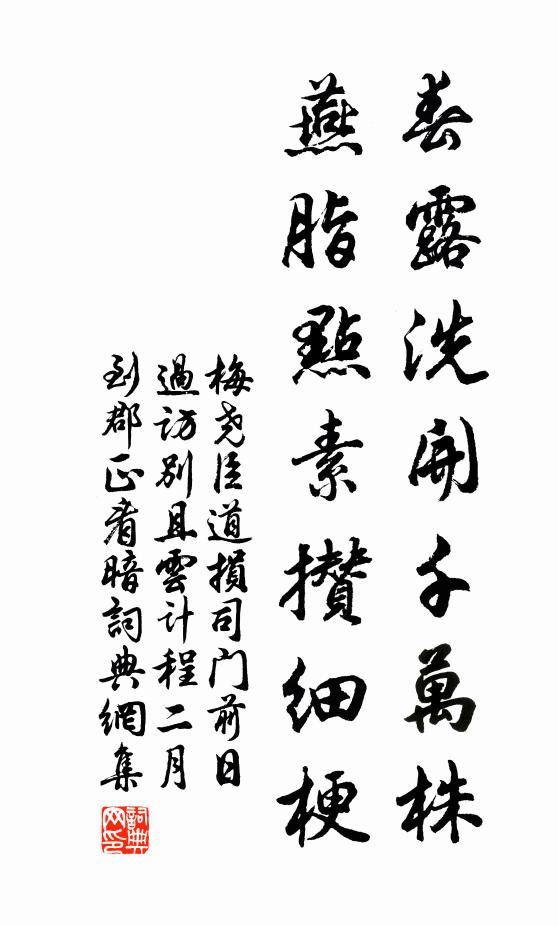 春露洗開千萬株
燕脂點素攢細梗
梅堯臣道損司門前日
過訪別且雲計程二月
到郡正看暗詞典網集
詞典网印